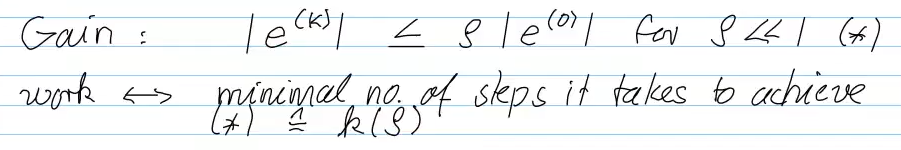 Gain : |e^(k)| ≤ ρ |e^(0)| for ρ ≪ 1 (*)
work ↔ minimal no. of steps it takes to achieve
(*) ≙ k(ρ)